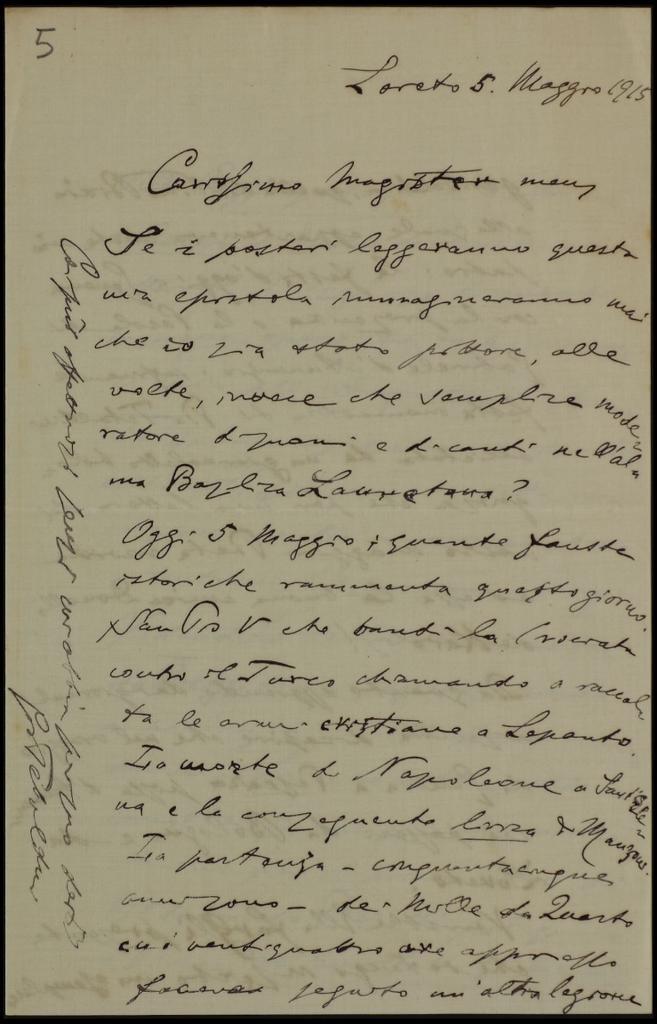 5
Loreto 5. Maggio 1915
Carissimo Magister meus
Se i posteri leggeranno questa
mia epistola immagineranno mai
che io sia stato pittore, alle
volte, invece che semplice mode-
ratore di suoni e di canti nell'al-
ma Basilica Lauretana?
Oggi 5 Maggio; quante fauste
istoriche rammenta questo giorno.
San Pio V che bandì la Crociata
contro il Turco chiamando a raccol-
ta le armi cristiane a Lepanto.
La morte di Napoleone a Sant'Ele-
na e la conseguente lirica di Manzoni.
La partenza – cinquantacinque
anni sono – dei Mille da Quarto
cui ventiquattro ore appresso
faceva seguito un'altra legione
Coi più affettuosi